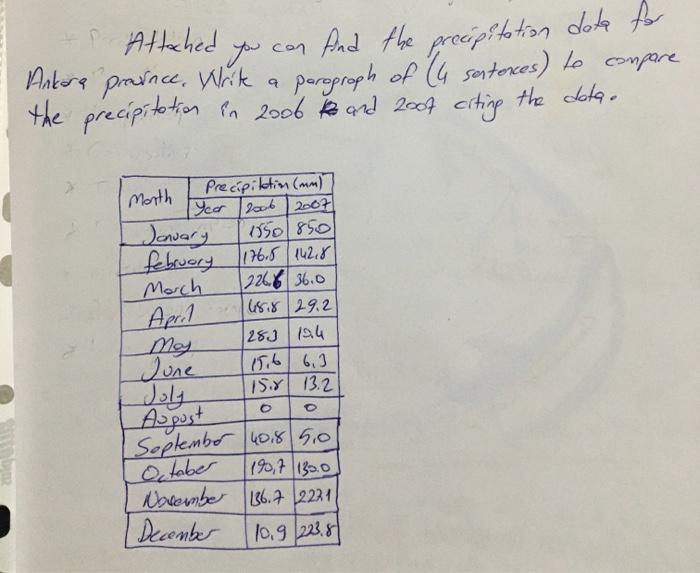 Attached you can find the precipitation data for
Ankara province. Write a paragraph of (4 sentences) to compare
the precipitation in 2006 and 2007 citing the data.
Month Precipitation (mm)
Year 2006 2007
January 1550 850
February 176.5 142.8
March 226.6 36.0
April 48.8 29.2
May 28.3 19.4
June 15.6 6.3
July 15.8 13.2
August 0 0
September 40.8 5.0
October 190.7 130.0
November 136.7 227.1
December 10.9 223.8